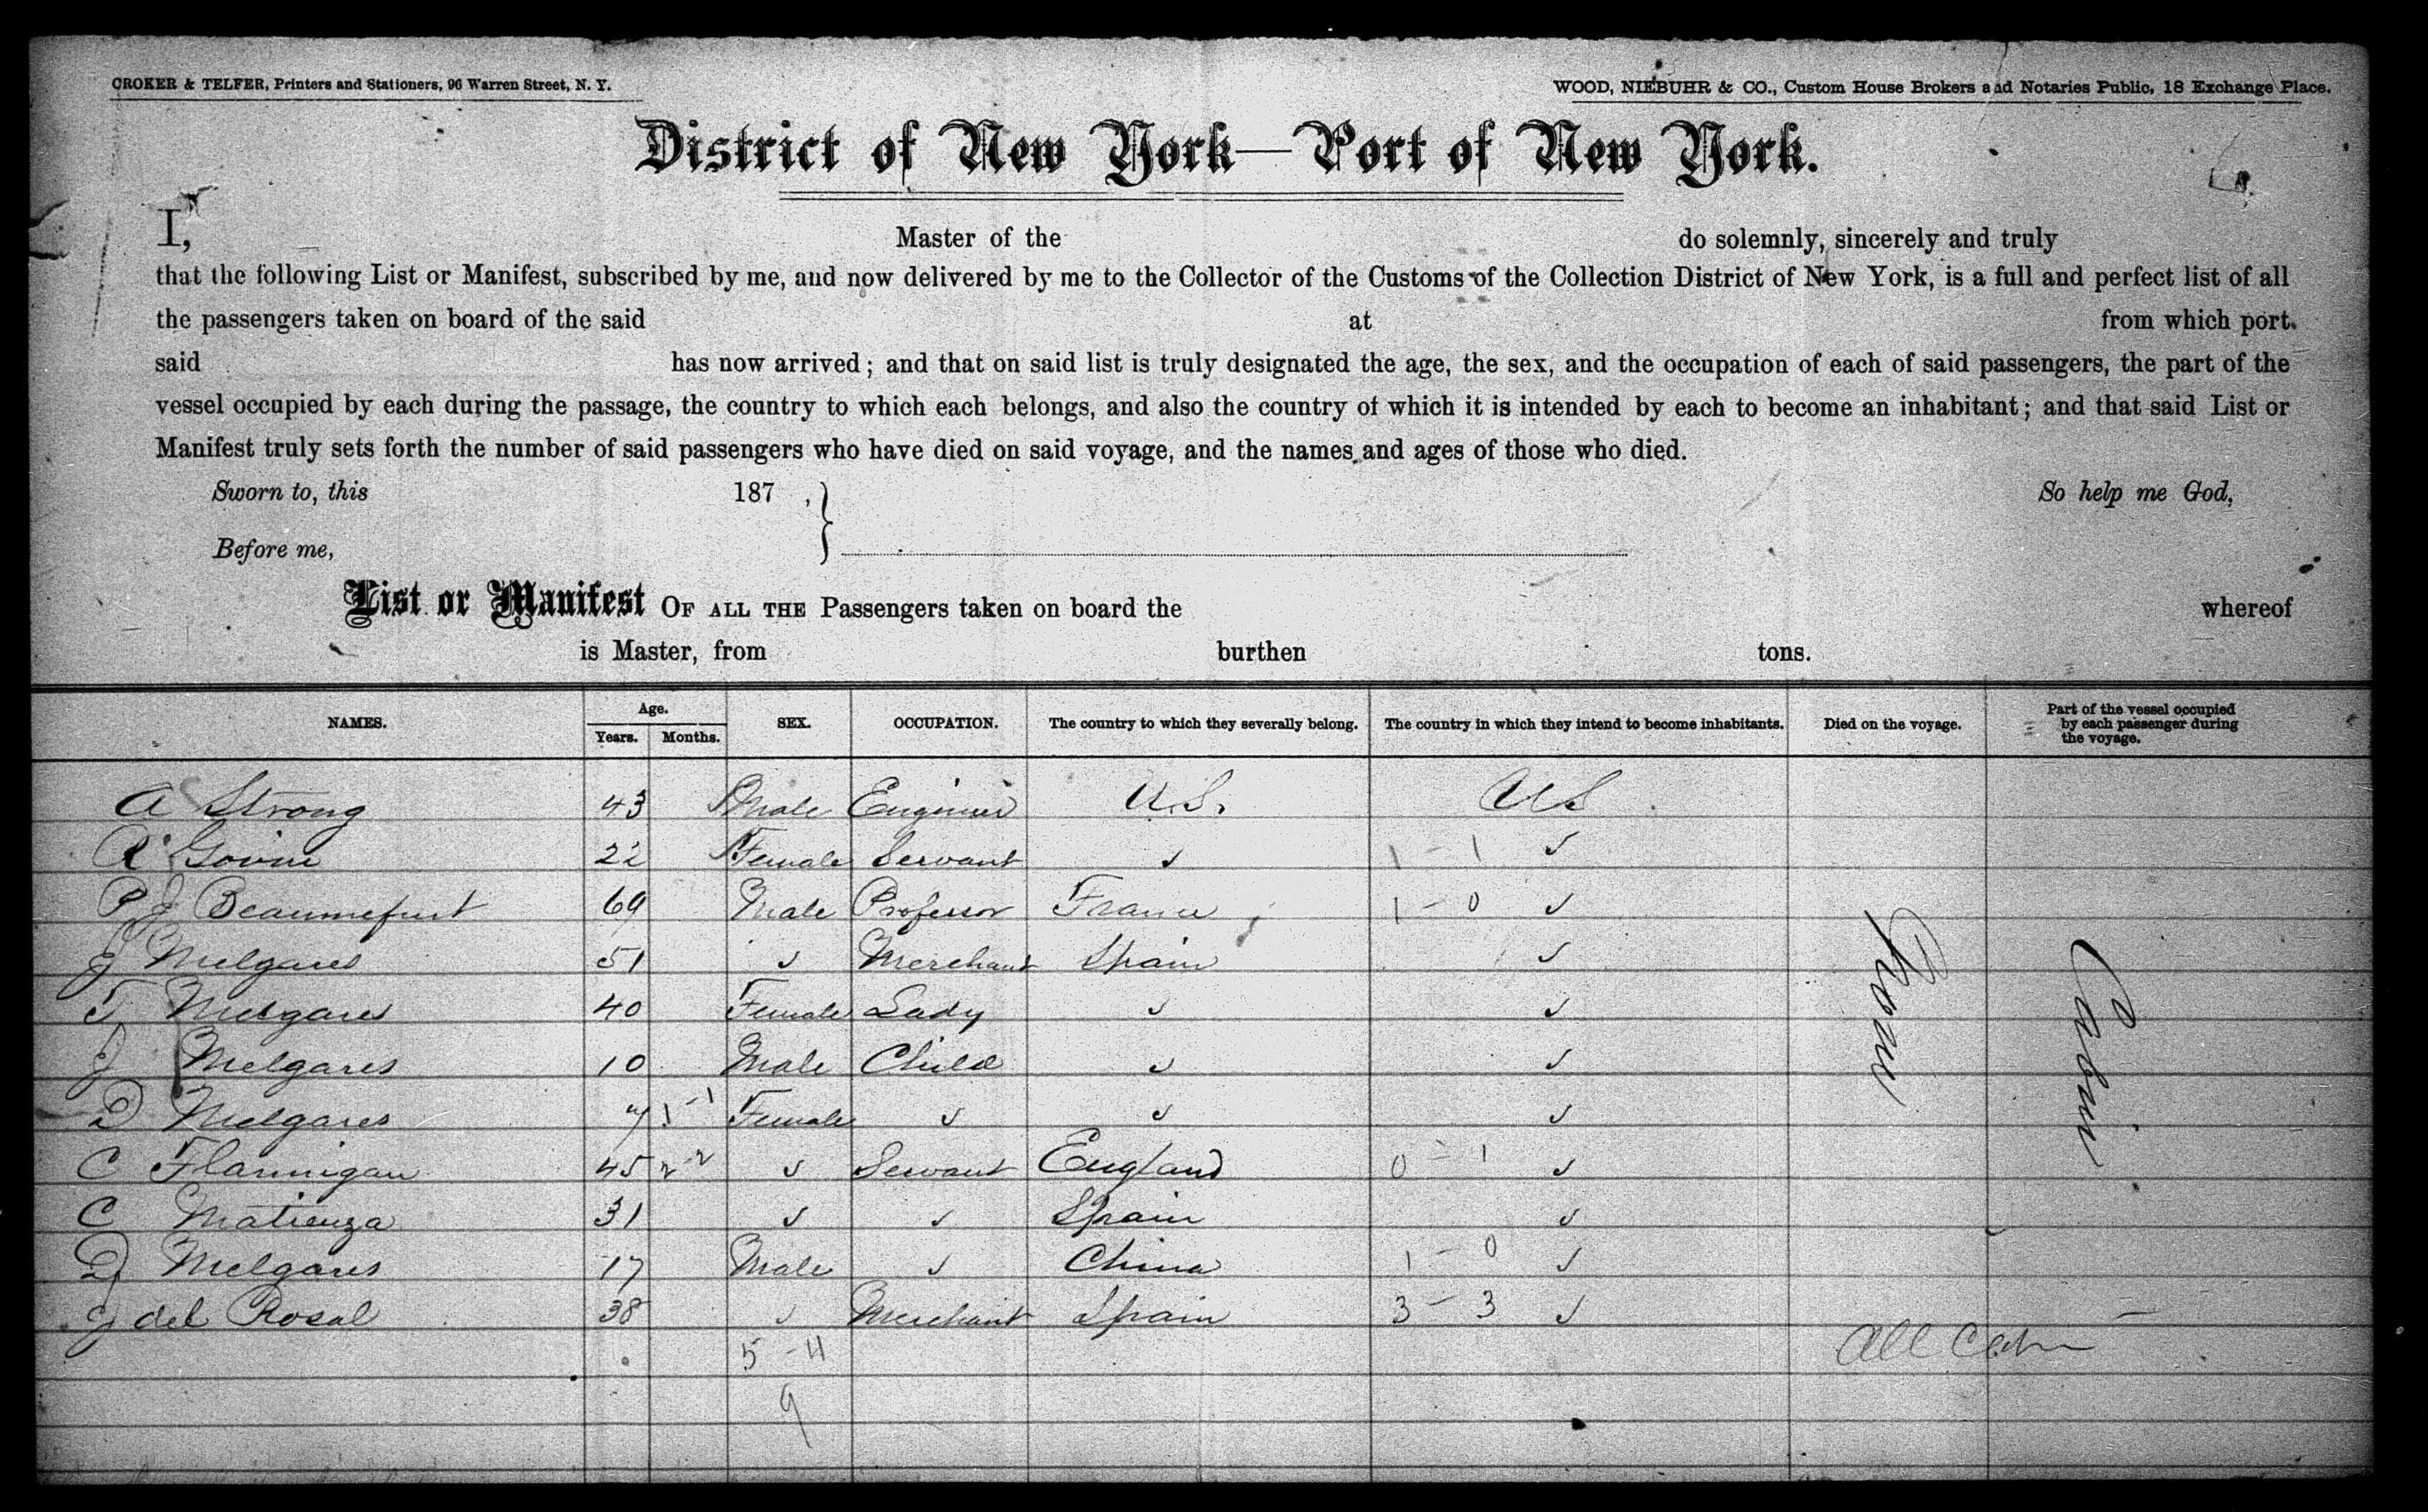 CROKER & TELFER, Printers and Stationers, 96 Warren Street, N. Y.
WOOD, NIEBUHR & CO., Custom House Brokers and Notaries Public, 18 Exchange Place.
District of New York—Port of New York.
I, Master of the do solemnly, sincerely and truly
that the following List or Manifest, subscribed by me, and now delivered by me to the Collector of the Customs of the Collection District of New York, is a full and perfect list of all
the passengers taken on board of the said at from which port
said has now arrived; and that on said list is truly designated the age, the sex, and the occupation of each of said passengers, the part of the
vessel occupied by each during the passage, the country to which each belongs, and also the country of which it is intended by each to become an inhabitant; and that said List or
Manifest truly sets forth the number of said passengers who have died on said voyage, and the names and ages of those who died.
Sworn to, this 187 , So help me God,
Before me,
List or Manifest OF ALL THE Passengers taken on board the whereof
is Master, from burthen tons.
NAMES. Age. Years. Months. SEX. OCCUPATION. The country to which they severally belong. The country in which they intend to become inhabitants. Died on the voyage. Part of the vessel occupied by each passenger during the voyage.
A Strong 43 Male Engineer U.S. US
22 Female Servant ✓ 1 - 1 ✓
P J 69 Male Professor France 1 - 0 ✓
J Melgares 51 ✓ Merchant Spain ✓
T Melgares 40 Female Lady ✓ ✓
J Melgares 10 Male Child ✓ ✓
D Melgares 7 1-1 Female ✓ ✓ ✓
C Flannigan 45 2-2 ✓ Servant England 0 - 1 ✓
C Matienza 31 ✓ ✓ Spain ✓
D Melgares 17 Male ✓ China 1 - 0 ✓
J del Rosal 38 ✓ Merchant Spain 3 - 3 ✓
None
Cabin
5 - 4
9
All